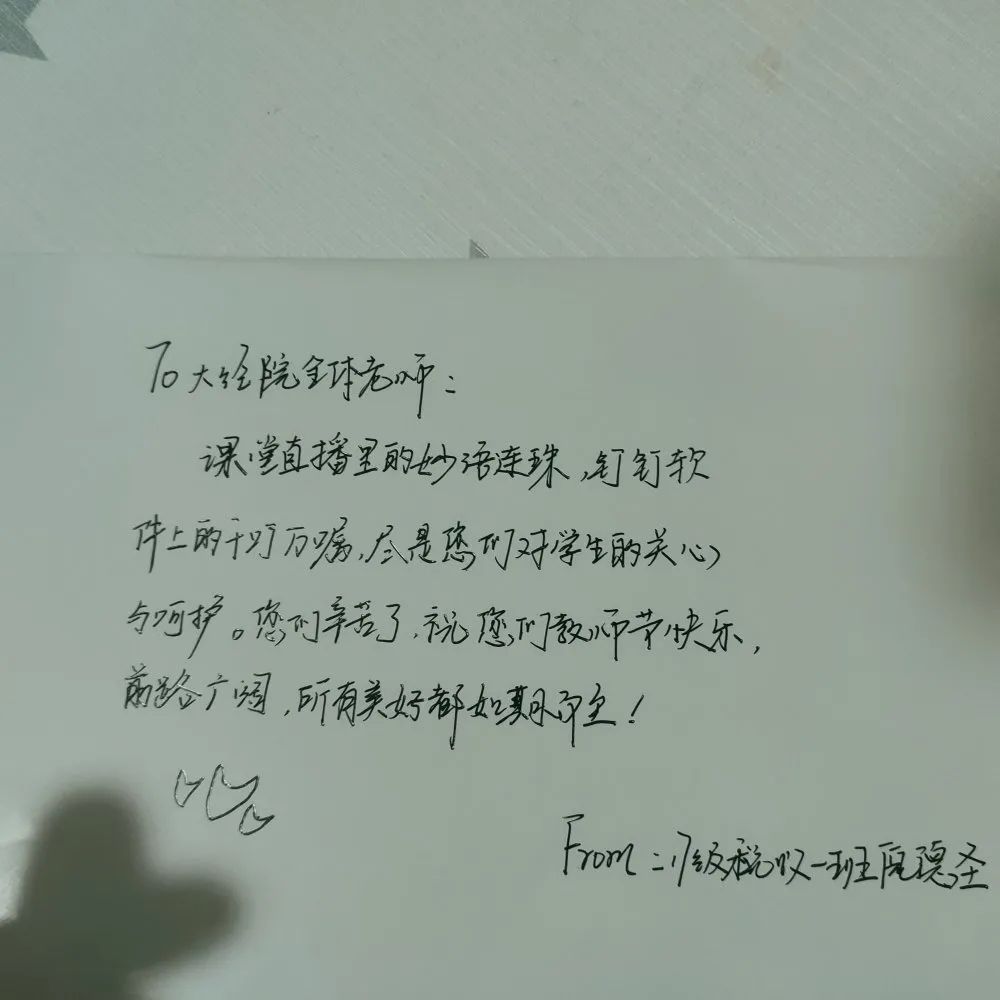 To 大经院全体老师：
课堂直播里的妙语连珠，钉钉软
件上的千叮万嘱，尽是您们对学生的关心
与呵护。您们辛苦了，祝您们教师节快乐，
前路广阔，所有美好都如期而至！
From：17级税收一班 德圣